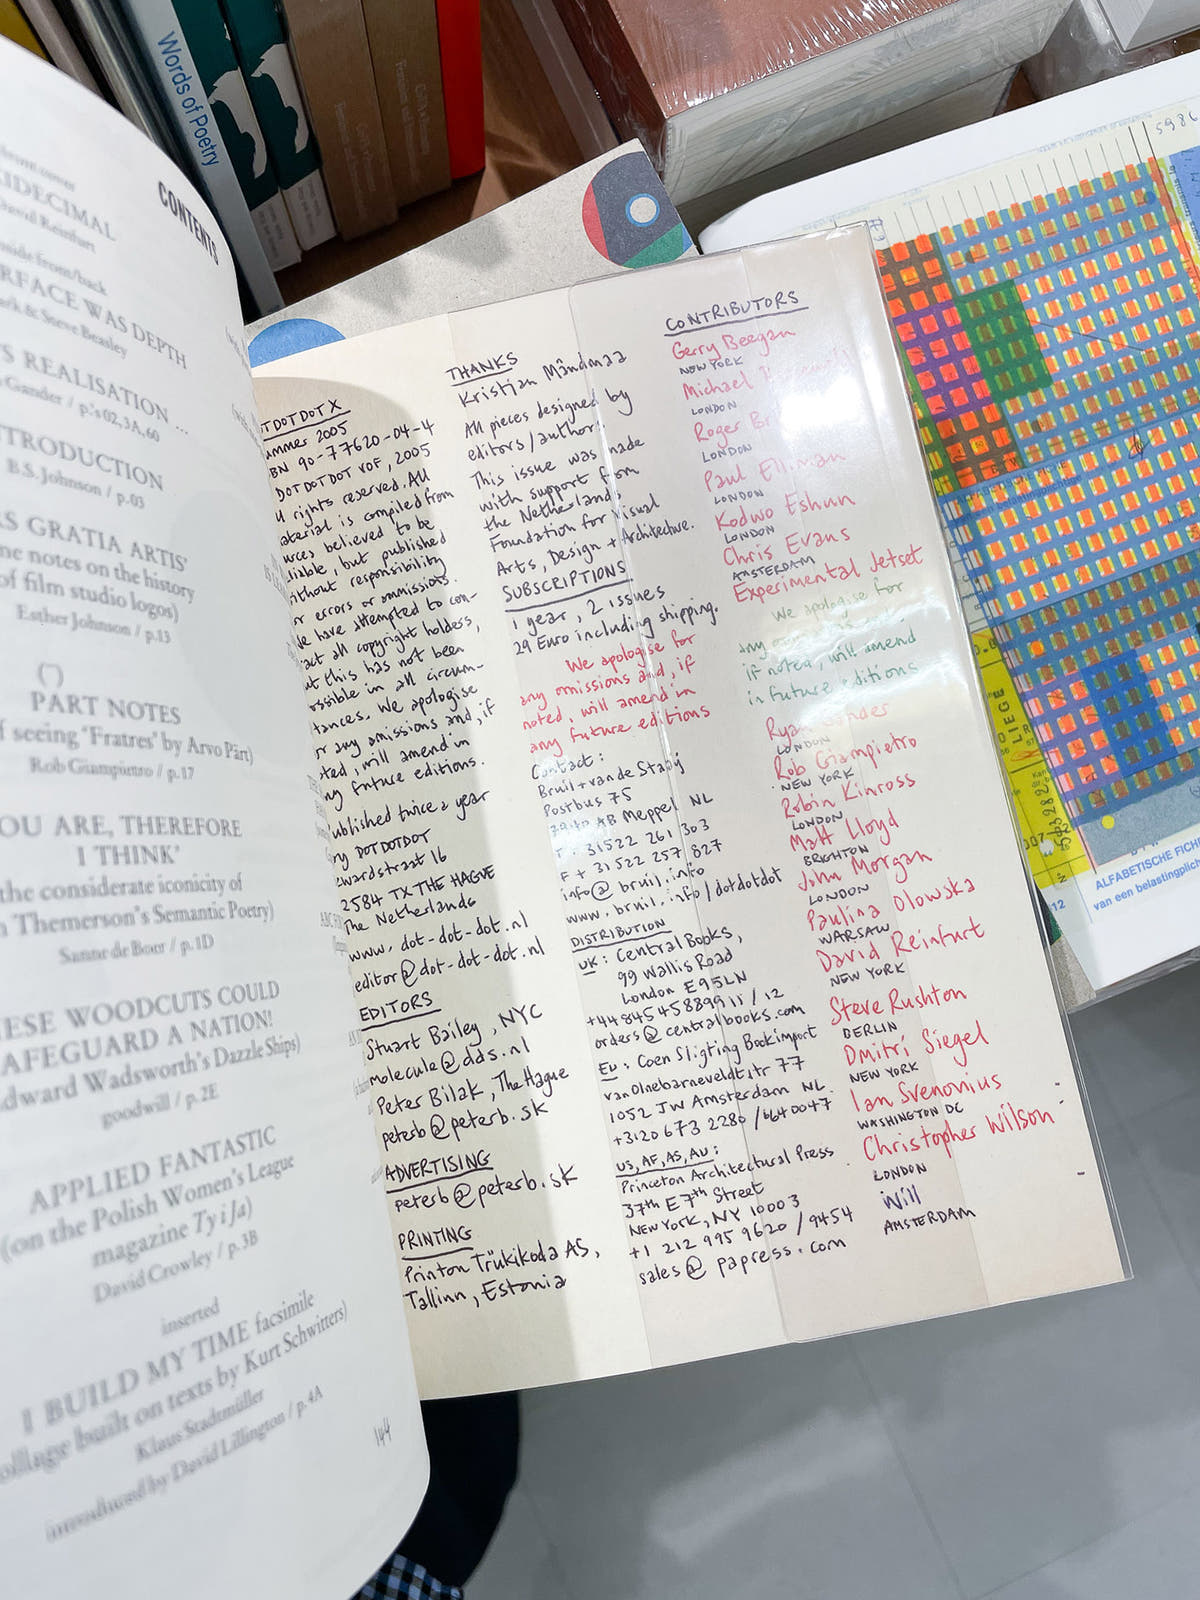 Words of Poetry
CONTENTS
David Reinfurt
inside front/back
RFACE WAS DEPTH
ark & Steve Beasley
S REALISATION ...
Gander / p.'s 02, 3A, 60
TRODUCTION
B.S. Johnson / p.03
S GRATIA ARTIS'
ne notes on the history
of film studio logos)
Esther Johnson / p.13
( )
PART NOTES
f seeing 'Fratres' by Arvo Pärt)
Rob Giampietro / p.17
OU ARE, THEREFORE
I THINK'
the considerate iconicity of
Themerson's Semantic Poetry)
Sanne de Boer / p.1D
ESE WOODCUTS COULD
AFEGUARD A NATION!
dward Wadsworth's Dazzle Ships)
goodwill / p.2E
APPLIED FANTASTIC
(on the Polish Women's League
magazine Ty i Ja)
David Crowley / p.3B
inserted
I BUILD MY TIME facsimile
ollage built on texts by Kurt Schwitters)
Klaus Stadtmüller
introduced by David Lillington / p.4A
144
T DOT DOT X
ummer 2005
BN 90-77620-04-4
DOT DOT DOT VOF, 2005
ll rights reserved. All
aterial is compiled from
urces believed to be
liable, but published
ithout responsibility
or errors or ommissions.
We have attempted to con-
act all copyright holders,
ut this has not been
ossible in all circum-
tances. We apologise
or any omissions and, if
oted, will amend in
ny future editions.
ublished twice a year
by DOTDOTDOT
ewardstraat 16
2584 TX THE HAGUE
The Netherlands
www.dot-dot-dot.nl
editor@dot-dot-dot.nl
EDITORS
Stuart Bailey, NYC
molecule@dds.nl
Peter Bilak, The Hague
peterb@peterb.sk
ADVERTISING
peterb@peterb.sk
PRINTING
Printon Trükikoda AS,
Tallinn, Estonia
THANKS
Kristjan Mändmaa
All pieces designed by
editors/authors
This issue was made
with support from
the Netherlands
Foundation for Visual
Arts, Design + Architecture.
SUBSCRIPTIONS
1 year, 2 issues
29 Euro including shipping.
We apologise for
any omissions and, if
noted, will amend in
any future editions
Contact:
Bruil + van de Staaij
Postbus 75
7940 AB Meppel NL
T + 31522 261 303
F + 31522 257 827
info@bruil.info
www.bruil.info/dotdotdot
DISTRIBUTION
UK: Central Books,
99 Wallis Road
London E9 5LN
+44 845 458899 11/12
orders@centralbooks.com
EU: Coen Sligting Bookimport
van Olnebarneveldtstr 77
1052 JW Amsterdam NL
+3120 673 2280 / 6640047
US, AF, AS, AU:
Princeton Architectural Press
37th E 7th Street
New York, NY 10003
+1 212 995 9620 / 9454
sales@papress.com
CONTRIBUTORS
Gerry Beegan
NEW YORK
Michael
LONDON
Roger
LONDON
Paul Elliman
LONDON
Kodwo Eshun
LONDON
Chris Evans
AMSTERDAM
Experimental Jetset
We apologise for
any
if noted, will amend
in future editions
Ryan Gander
LONDON
Rob Giampietro
NEW YORK
Robin Kinross
LONDON
Matt Lloyd
BRIGHTON
John Morgan
LONDON
Paulina Olowska
WARSAW
David Reinfurt
NEW YORK
Steve Rushton
BERLIN
Dmitri Siegel
NEW YORK
Ian Svenonius
WASHINGTON DC
Christopher Wilson
LONDON
Will
AMSTERDAM
5986
LIEGE
593282
12
ALFABETISCHE FICHE
van een belastingplichtige
ALFABETISCHE FICHE
van een belastingplic